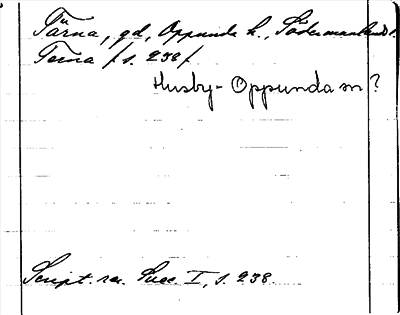 Tärna, gd, Oppunda h., Södermanlands l.
Terna /s. 238/
Husby-Oppunda sn?
Script. rer. Suec. I, s. 238.